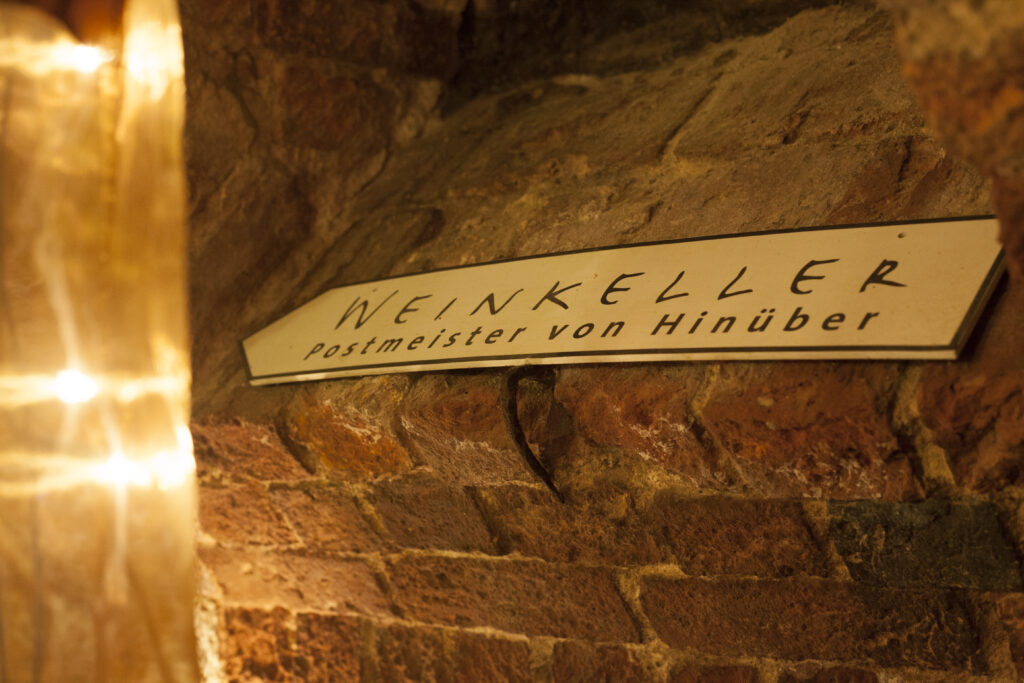 WEINKELLER
Postmeister von Hinüber